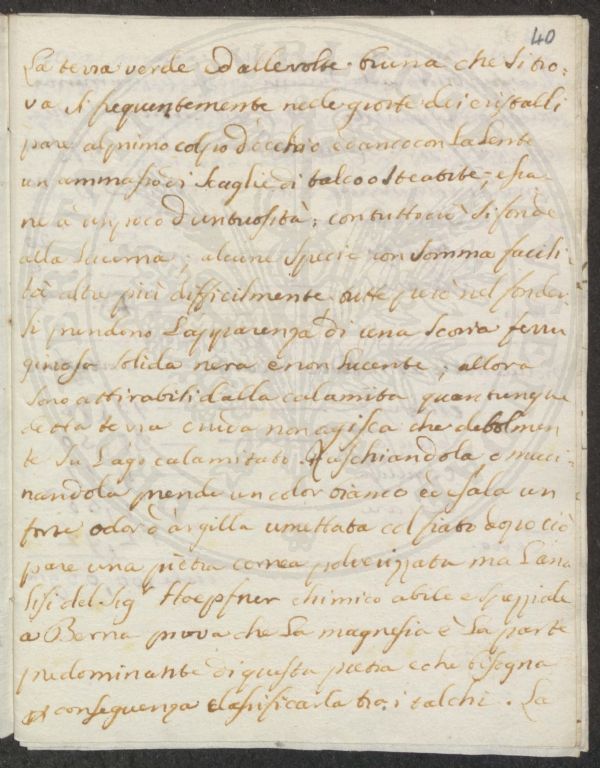 40
La terra verde ed alle volte bruna che si tro=
va sì frequentemente nelle grotte dei cristalli
pare al primo colpo d'occhio ed anco con la lente
un ammasso di scaglie di talco o steatite, e sia
ne à un poco d'untuosità; con tutto ciò si fonde
alla lucerna; alcune specie con somma facili=
tà altre più difficilmente tutte però nel fonder
si prendono l'apparenza di una scoria ferru
ginosa solida nera e non lucente; allora
sono attirabili dalla calamita quantunque
detta terra cruda non agisca che debolmen
te su l'ago calamitato. Raschiandola o maci=
nandola prende un color bianco ed esala un
forte odor d'argilla umettata col fiato dopo ciò
pare una pietra cornea polverizzata ma l'ana
lisi del Sigr Hoepfner chimico abile e spezziale
a Berna prova che la magnesia è la parte
predominante di questa pietra e che bisogna
in conseguenza classificarla tra i talchi. La